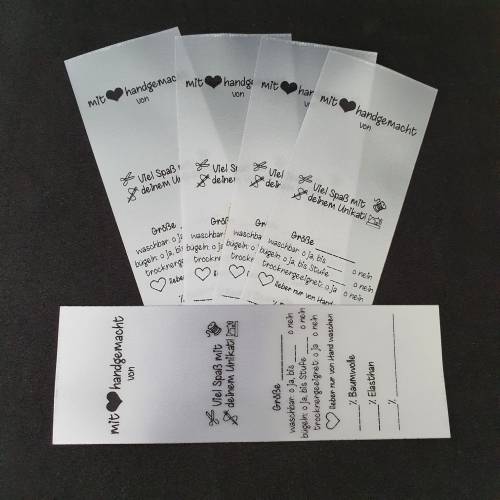 mit handgemacht
von
Viel Spaß m
deinem Unikat
Größe
waschbar: o ja,
bügeln: o ja, b
trocknergeei
lieber nu
%
mit handg
von
Viel Spaß
deinem
Größe
waschba
bügeln: o
trockne
lieb
%
mit handg
von
Viel Spaß
deiner
Gr
wasch
bügeln
trock
l
%
mit handgemacht
von
Viel Spaß mit
deinem Unikat!
Größe
waschbar: o ja, bis o nein
bügeln: o ja, bis Stufe o nein
trocknergeeignet: o ja o nein
lieber nur von Hand
mit handgemacht
von
Viel Spaß mit
deinem Unikat!
Größe
waschbar: o ja, bis o nein
bügeln: o ja, bis Stufe o nein
trocknergeeignet: o ja o nein
lieber nur von Hand waschen
% Baumwolle
% Elasthan
%